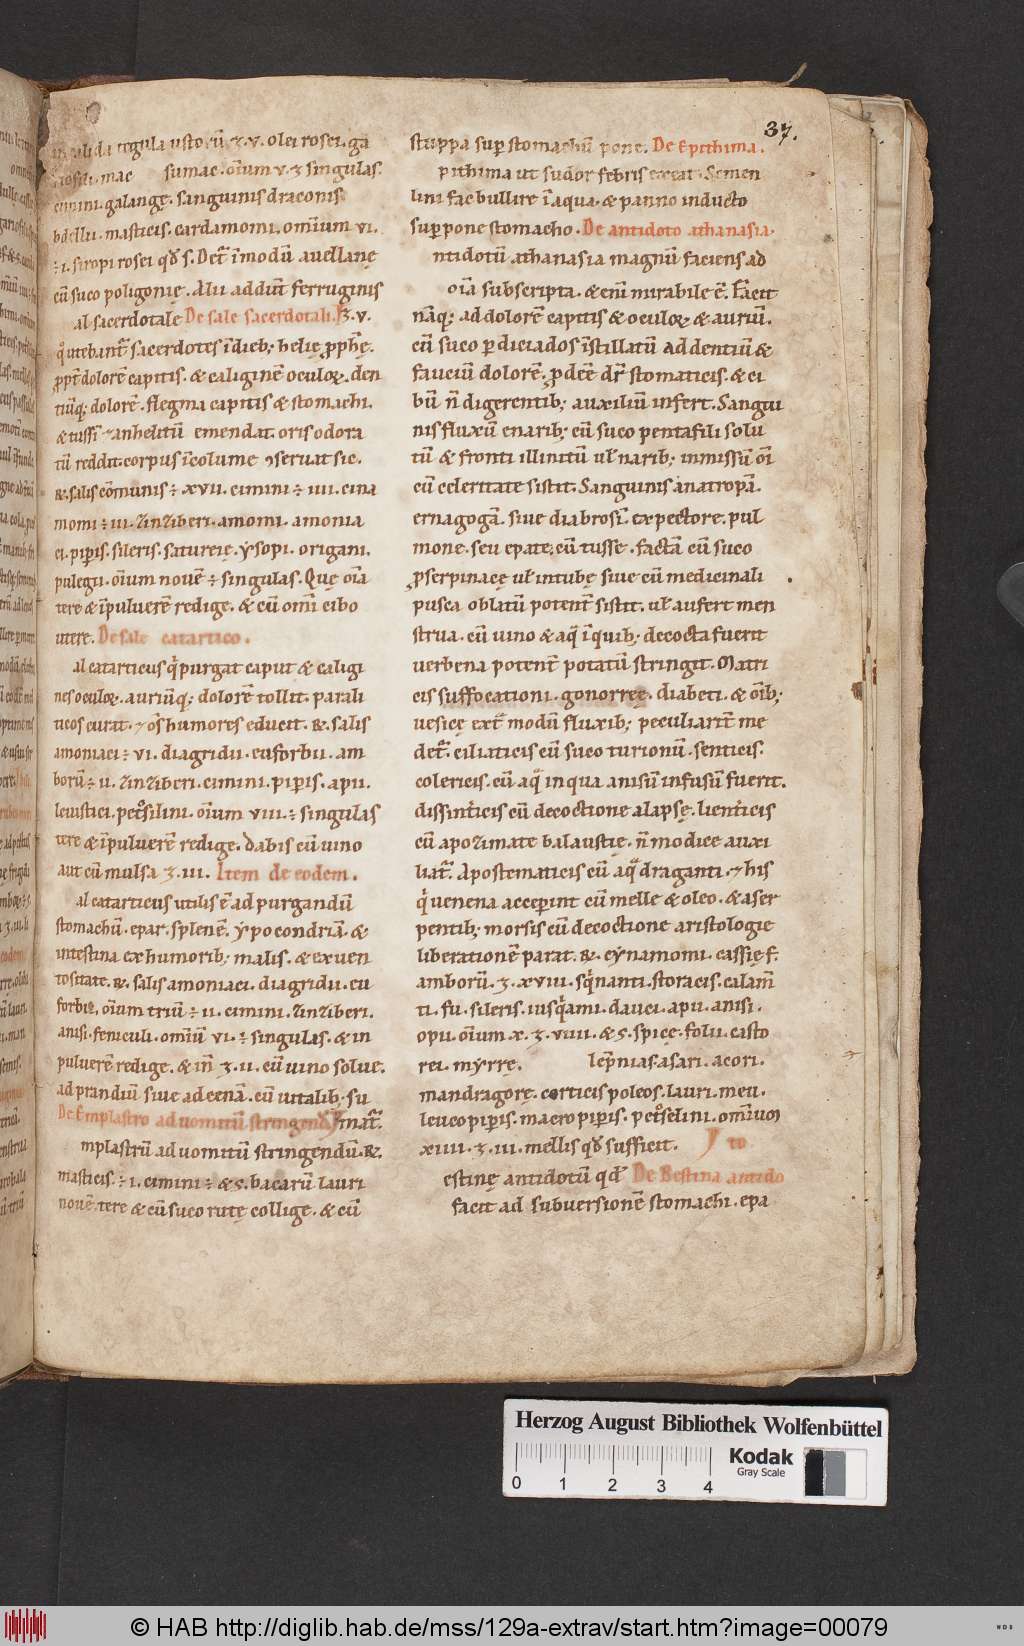 37.
calida tegula ustorũ ʒ. v. olei rosei. ga
riofili. mac sumac. oĩum v. ʒ singulas.
cimini. galangę. sanguinis draconis
bdellii. masticis. cardamomi. omĩum vi.
÷ i. siropi rosei qđ s. Det᷒ ĩ modũ auellanę
cũ suco poligonię. Alii addunt ferruginis
al sacerdotale De sale sacerdotali. ʒ. v.
q̇ utebant᷒ sacerdotes ĩ dieb; helie ꝓphę.
ꝓpt̃ dolorẽ capitis. & caliginẽ oculoꝝ. den
tiũq; dolorẽ. flegma capitis & stomachi.
& tussĩ ⁊ anhelitũ emendat. oris odora
tũ reddit. corpus ĩcolume ꝯseruat sic.
R. salis cõmunis ÷ xvii. cimini ÷ iiii. cina
momi ÷ iii. zinziberi. amomi. amonia
ci. pip̲is. sileris. satureię. ẏsopi. origani.
pulegii. oĩum nouẽ ÷ singulas. Quę oĩa
tere & ĩpulverẽ redige. & cũ omĩ cibo
utere. De sale catartico.
al catarticus q̇ purgat caput & caligi
nes oculoꝝ. auriũq; dolorẽ tollit. parali
ticos curat. ⁊ oĩs humores educit. R. salis
amoniaci ÷ vi. diagridii. euforbii. am
borũ ÷ ii. zinziberi. cimini. pip̲is. apii.
leuistici. pet᷒silini. oĩum viii. ÷ singulas
tere & ĩpulverẽ redige. dabis cũ uino
aut cũ mulsa ʒ. iii. Item de eodem.
al catarticus utilis ẽ ad purgandũ
stomachũ. epar. splenẽ. ẏpocondriã. &
intestina ex humorib; malis. & ex uen
tositate. R. salis amoniaci. diagridii. eu
forbii. oĩum triũ ÷ ii. cimini. zinziberi.
anisi. feniculi. omĩũ vi. ÷ singulas. & in
pulverẽ redige. & iñ ʒ. ii. cũ uino solue.
ad prandiũ siue ad cenã. cũ uitalib; su
De Emplastro ad uomitũ stringendũ mat᷒.
mplastrũ ad uomitũ stringendũ. R.
masticis. ÷ i. cimini ÷ & s. bacarũ lauri
nouẽ. tere & cũ suco rutę collige. & cũ
stuppa sup̲ stomachũ pone. De Epithima.
pithima ut sudor febris exeat. Semen
lini fac bullire ĩ aqua. & panno inducto
sup̲pone stomacho. De antidoto athanasia.
ntidotũ athanasia magnũ faciens ad
oĩa subscripta. & eni᷒ mirabile ẽ. Facit
nãq; ad dolorẽ capitis & oculoꝝ & auriũ.
cũ suco p̲diciados ĩstillatũ ad dentiũ &
fauciũ dolorẽ. ꝓdẽẽ dr᷒ stomaticis. & ci
bũ ñ digerentib; auxiliũ infert. Sangui
nis fluxũ e narib; cũ suco pentafili solu
tũ & fronti illinitũ uł narib; inmissũ oĩ
cũ celeritate sistit. Sanguinis anatropã.
ernagogã. siue diabrosĩ. ex pectore. pul
mone. seu epate. cũ tusse. factã cũ suco
ꝓserpinacę uł intubę siue cũ medicinali
pusca oblatũ potent᷒ sistit. uł aufert men
strua. cũ uino & aq̃ ĩ quib; decocta fuerit
uerbena potent᷒ potatũ stringit. Matri
cis suffocationi. gonorreę. diabeti. & oĩb;
uesicę ext᷒ modũ fluxib; peculiarit᷒ me
det᷒. ciliaticis cũ suco turionũ. senticis.
colericis. cũ aq̃ in qua anisũ infusũ fuerit.
dissint᷒icis cũ decoctione alapsę. lient᷒icis
cũ apozimate balaustię. ñ modice auxi
liat᷒. Apostematicis cũ aq̃ draganti. ⁊ his
q̇ uenena accep̲int cũ melle & oleo. & a ser
pentib; morsis cũ decoctione aristologie
liberationẽ parat. R. cẏnamomi. cassię f.
amborũ. ʒ. xviii. sq̇nanti. storacis. calam̃
ti. fu. sileris. iusq̇ami. dauci. apii. anisi.
opii. oĩum x. ʒ. viiii. & s. spicę. folii. casto
rei. mẏrrę. lep̃nias. asari. acori.
mandragorę. corticis poleos. lauri. meu.
leucopip̲is. macropip̲is. pet᷒selini. omĩum
xiiii. ʒ. iii. mellis qđ sufficit. to
estinę antidotũ qđ De Bestina antido
facit ad subuersionẽ stomachi. epa
Herzog August Bibliothek Wolfenbüttel
Kodak
Gray Scale
0 1 2 3 4
© HAB http://diglib.hab.de/mss/129a-extrav/start.htm?image=00079